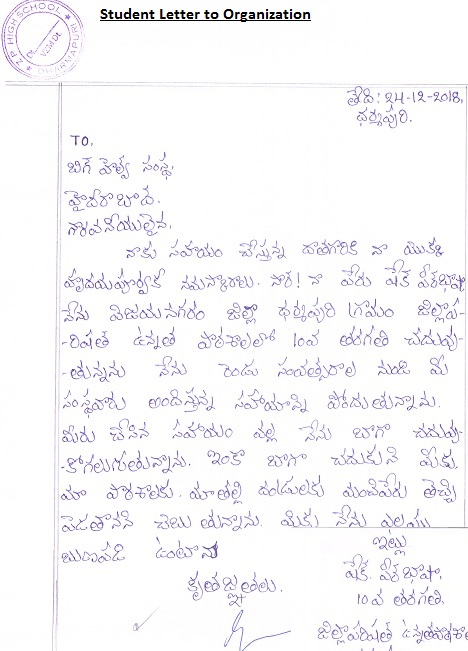 Student Letter to Organization
Z P HIGH SCHOOL
Dt. VZM Dt.
DHARMAPURI
తేది: 24-12-2018,
ధర్మపురి.
TO,
బిగ్ హెల్ప్ సంస్థ,
హైదరాబాద్.
గౌరవనీయులైన,
నాకు సహాయం చేస్తున్న దాతగారికి నా యొక్క
హృదయపూర్వక నమస్కారాలు. సార్! నా పేరు షేక్ పీరిభాషా
నేను విజయనగరం జిల్లా ధర్మపురి గ్రామం జిల్లాప-
-రిషత్ ఉన్నత పాఠశాలలో 10వ తరగతి చదువు-
-తున్నను నేను రెండు సంవత్సరాల నుండి మీ
సంస్థవారు అందిస్తున్న సహాయాన్ని పొందుతున్నాను.
మీరు చేసిన సహాయం వల్ల నేను బాగా చదువు-
-కోగలుగుతున్నాను. ఇంకా బాగా చదుకుని మీకు,
మా పాఠశాలకు, మా తల్లి దండులకు మంచిపేరు తెచ్చి
పెడతానని చెబుతున్నాను. మీకు నేను ఎల్లప్పు
బుణపడి ఉంటాను
కృతజ్ఞతలు.
ఇట్లు
షేక్. పీరిభాషా,
10వ తరగతి,
జిల్లాపరిషత్ ఉన్నతపాఠశాల